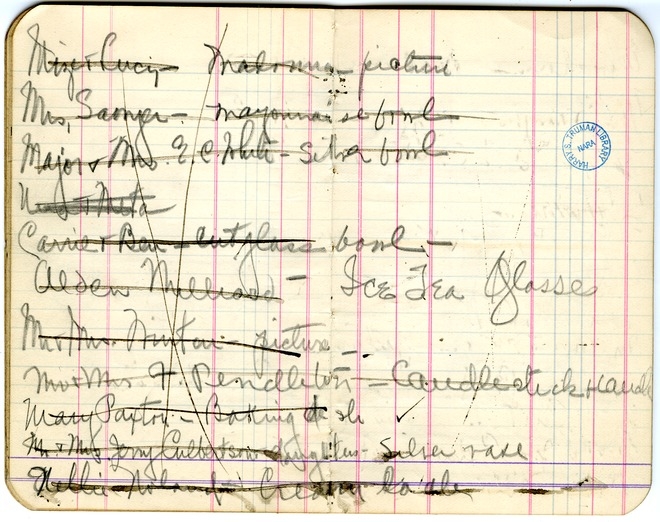 Madonna picture
Mrs. Sawyer - mayonnaise bowl
Major & Mrs E.C. White - silver bowl
HARRY S. TRUMAN LIBRARY
NARA
Carrie & Ben - cut glass bowl -
- Ice Tea Glasses
Mr & Mrs. - picture -
Mr & Mrs F. Pendleton - Candlestick & Candle
Mary Paxton - Baking dish ✓
Mr & Mrs Jerry Culbertson - silver vase
Nellie Noland - Cream ladle